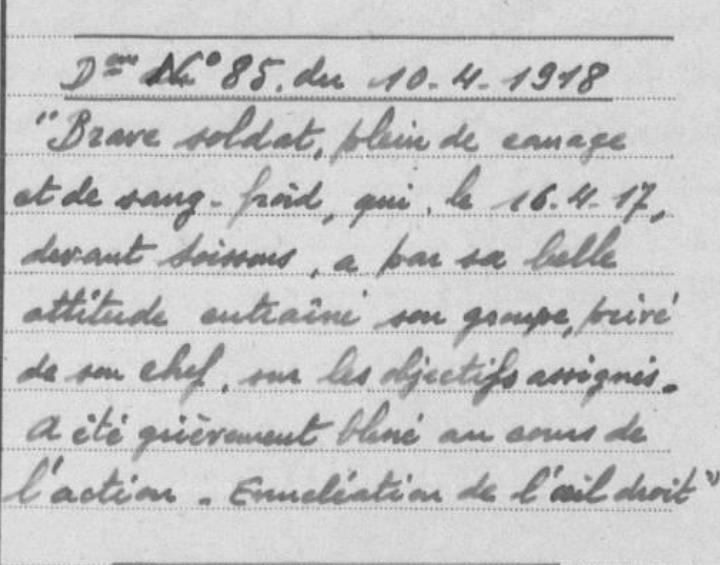 Don N° 85. du 10-4-1918
"Brave soldat, plein de courage
et de sang-froid, qui, le 16.4.17,
devant Soissons, a par sa belle
attitude entraîné son groupe, privé
de son chef, sur les objectifs assignés.
A été grièvement blessé au cours de
l'action. Enucléation de l'œil droit"